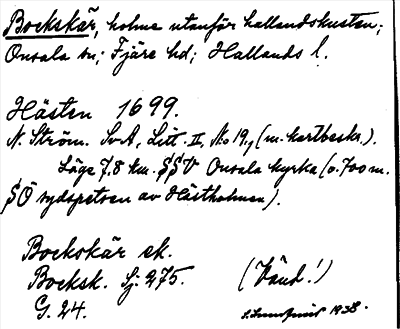 Bockskär, holme utanför hallandskusten;
Onsala sn; Fjäre hd; Hallands l.
Hästen 1699.
N. Ström. SvA, Litt. II, No 19, (m. kartbeskr.).
Läge 7.8 km. SSV Onsala kyrka (o. 700 m.
SÖ sydspetsen av Hästholmen).
Bockskär ek.
Bocksk. Sj. 275.
G. 24.
(Vänd!)
1938.